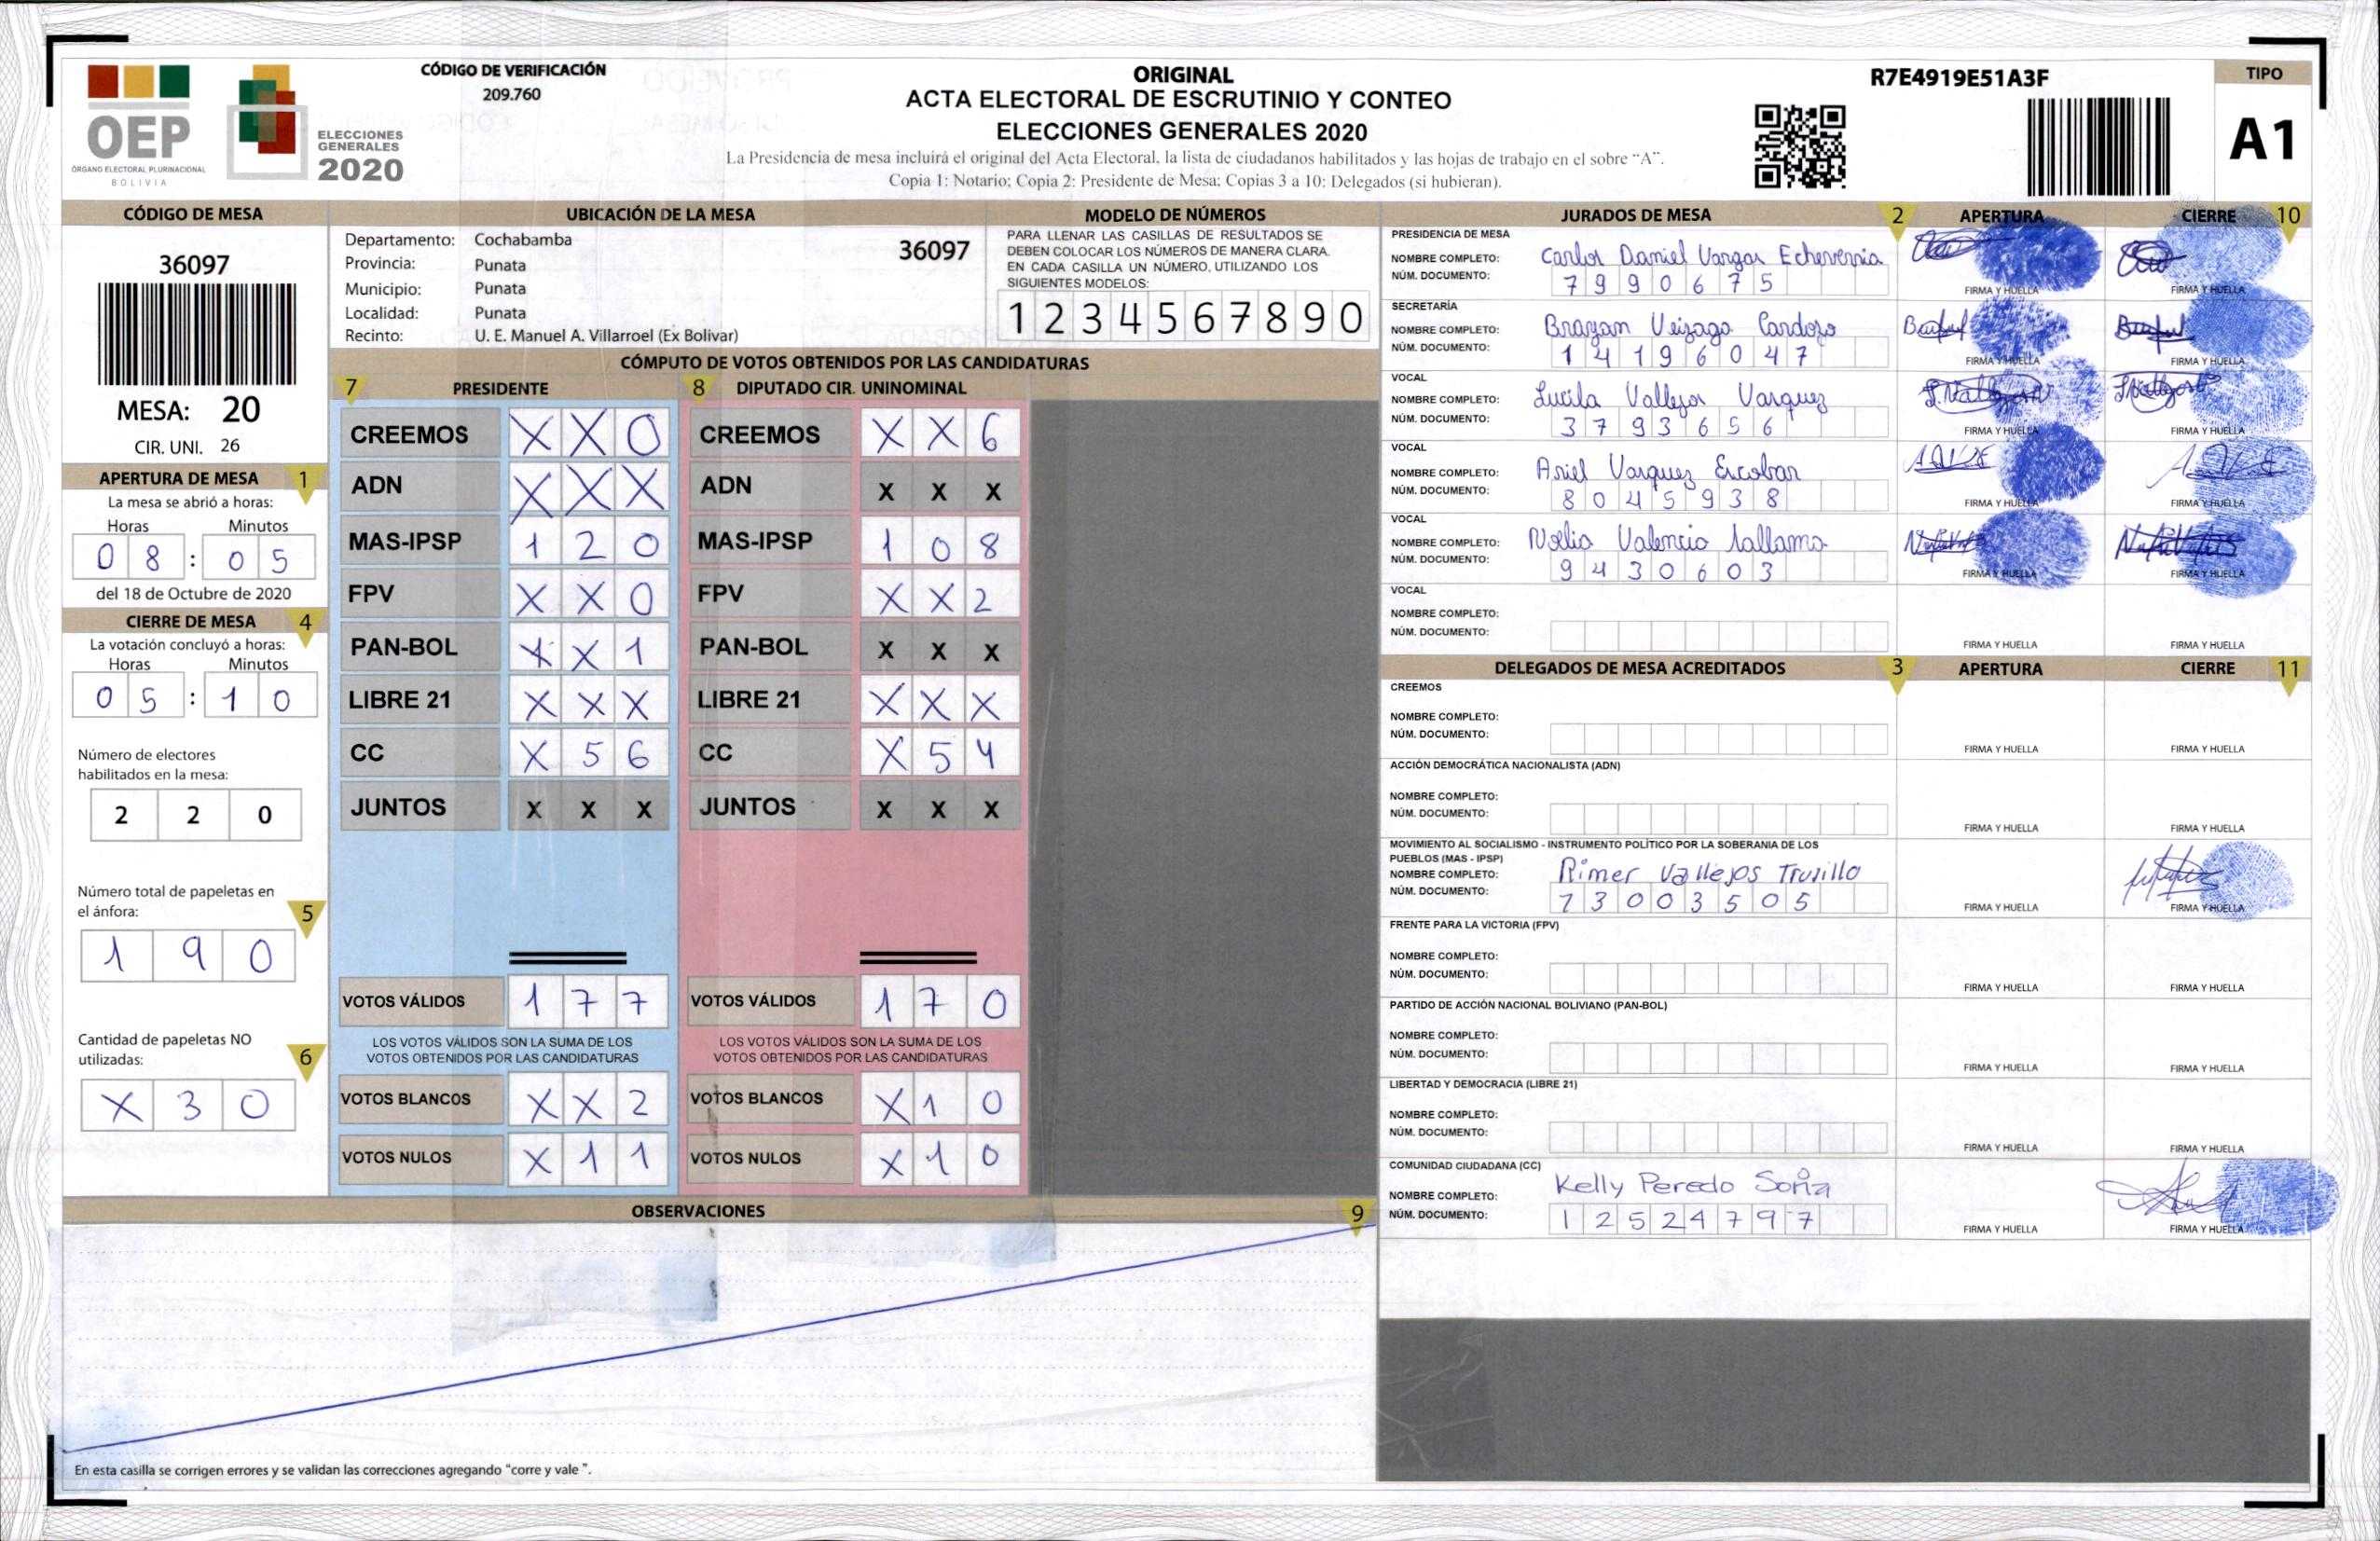 OEP
ÓRGANO ELECTORAL PLURINACIONAL
BOLIVIA
ELECCIONES
GENERALES
2020
CÓDIGO DE VERIFICACIÓN
209.760
ORIGINAL
ACTA ELECTORAL DE ESCRUTINIO Y CONTEO
ELECCIONES GENERALES 2020
La Presidencia de mesa incluirá el original del Acta Electoral, la lista de ciudadanos habilitados y las hojas de trabajo en el sobre “A”.
Copia 1: Notario; Copia 2: Presidente de Mesa; Copias 3 a 10: Delegados (si hubieran).
R7E4919E51A3F
TIPO
A1
CÓDIGO DE MESA
36097
MESA: 20
CIR. UNI. 26
APERTURA DE MESA 1
La mesa se abrió a horas:
Horas Minutos
0 8 : 0 5
del 18 de Octubre de 2020
CIERRE DE MESA 4
La votación concluyó a horas:
Horas Minutos
0 5 : 1 0
Número de electores
habilitados en la mesa:
2 2 0
Número total de papeletas en
el ánfora: 5
1 9 0
Cantidad de papeletas NO
utilizadas: 6
X 3 0
UBICACIÓN DE LA MESA
Departamento: Cochabamba
36097
Provincia: Punata
Municipio: Punata
Localidad: Punata
Recinto: U. E. Manuel A. Villarroel (Ex Bolivar)
MODELO DE NÚMEROS
PARA LLENAR LAS CASILLAS DE RESULTADOS SE
DEBEN COLOCAR LOS NÚMEROS DE MANERA CLARA.
EN CADA CASILLA UN NÚMERO, UTILIZANDO LOS
SIGUIENTES MODELOS:
1 2 3 4 5 6 7 8 9 0
CÓMPUTO DE VOTOS OBTENIDOS POR LAS CANDIDATURAS
7 PRESIDENTE
CREEMOS X X 0
ADN X X X
MAS-IPSP 1 2 0
FPV X X 0
PAN-BOL X X 1
LIBRE 21 X X X
CC X 5 6
JUNTOS X X X
VOTOS VÁLIDOS 1 7 7
LOS VOTOS VÁLIDOS SON LA SUMA DE LOS
VOTOS OBTENIDOS POR LAS CANDIDATURAS
VOTOS BLANCOS X X 2
VOTOS NULOS X 1 1
8 DIPUTADO CIR. UNINOMINAL
CREEMOS X X 6
ADN X X X
MAS-IPSP 1 0 8
FPV X X 2
PAN-BOL X X X
LIBRE 21 X X X
CC X 5 4
JUNTOS X X X
VOTOS VÁLIDOS 1 7 0
LOS VOTOS VÁLIDOS SON LA SUMA DE LOS
VOTOS OBTENIDOS POR LAS CANDIDATURAS
VOTOS BLANCOS X 1 0
VOTOS NULOS X 1 0
OBSERVACIONES 9
En esta casilla se corrigen errores y se validan las correcciones agregando “corre y vale ”.
JURADOS DE MESA 2 APERTURA CIERRE 10
PRESIDENCIA DE MESA
NOMBRE COMPLETO: Carlos Daniel Vargas Echeverria
NÚM. DOCUMENTO: 7 9 9 0 6 7 5
FIRMA Y HUELLA FIRMA Y HUELLA
SECRETARÍA
NOMBRE COMPLETO: Brayan Veizaga Cardozo
NÚM. DOCUMENTO: 1 4 1 9 6 0 4 7
FIRMA Y HUELLA FIRMA Y HUELLA
VOCAL
NOMBRE COMPLETO: Lucila Vallejos Vasquez
NÚM. DOCUMENTO: 3 7 9 3 6 5 6
FIRMA Y HUELLA FIRMA Y HUELLA
VOCAL
NOMBRE COMPLETO: Ariel Vasquez Escobar
NÚM. DOCUMENTO: 8 0 4 5 9 3 8
FIRMA Y HUELLA FIRMA Y HUELLA
VOCAL
NOMBRE COMPLETO: Noelia Valencia
NÚM. DOCUMENTO: 9 4 3 0 6 0 3
FIRMA Y HUELLA FIRMA Y HUELLA
VOCAL
NOMBRE COMPLETO:
NÚM. DOCUMENTO:
FIRMA Y HUELLA FIRMA Y HUELLA
DELEGADOS DE MESA ACREDITADOS 3 APERTURA CIERRE 11
CREEMOS
NOMBRE COMPLETO:
NÚM. DOCUMENTO:
FIRMA Y HUELLA FIRMA Y HUELLA
ACCIÓN DEMOCRÁTICA NACIONALISTA (ADN)
NOMBRE COMPLETO:
NÚM. DOCUMENTO:
FIRMA Y HUELLA FIRMA Y HUELLA
MOVIMIENTO AL SOCIALISMO - INSTRUMENTO POLÍTICO POR LA SOBERANIA DE LOS
PUEBLOS (MAS - IPSP)
NOMBRE COMPLETO: Rimer Vallejos Trujillo
NÚM. DOCUMENTO: 7 3 0 0 3 5 0 5
FIRMA Y HUELLA FIRMA Y HUELLA
FRENTE PARA LA VICTORIA (FPV)
NOMBRE COMPLETO:
NÚM. DOCUMENTO:
FIRMA Y HUELLA FIRMA Y HUELLA
PARTIDO DE ACCIÓN NACIONAL BOLIVIANO (PAN-BOL)
NOMBRE COMPLETO:
NÚM. DOCUMENTO:
FIRMA Y HUELLA FIRMA Y HUELLA
LIBERTAD Y DEMOCRACIA (LIBRE 21)
NOMBRE COMPLETO:
NÚM. DOCUMENTO:
FIRMA Y HUELLA FIRMA Y HUELLA
COMUNIDAD CIUDADANA (CC)
NOMBRE COMPLETO: Kelly Peredo Soria
NÚM. DOCUMENTO: 1 2 5 2 4 7 9 7
FIRMA Y HUELLA FIRMA Y HUELLA